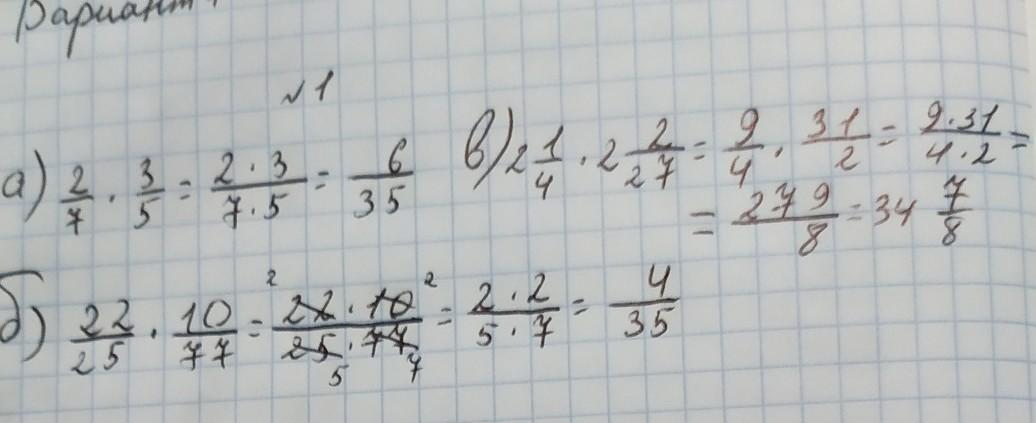 Вариант
№1
а) 2/7 · 3/5 = 2 · 3/7 · 5 = 6/35
в) 2 1/4 · 2 2/27 = 9/4 · 31/2 = 9 · 31/4 · 2 =
= 279/8 = 34 7/8
б) 22/25 · 10/77 = 2 22 · 10 2/25 5 · 77 7 = 2 · 2/5 · 7 = 4/35